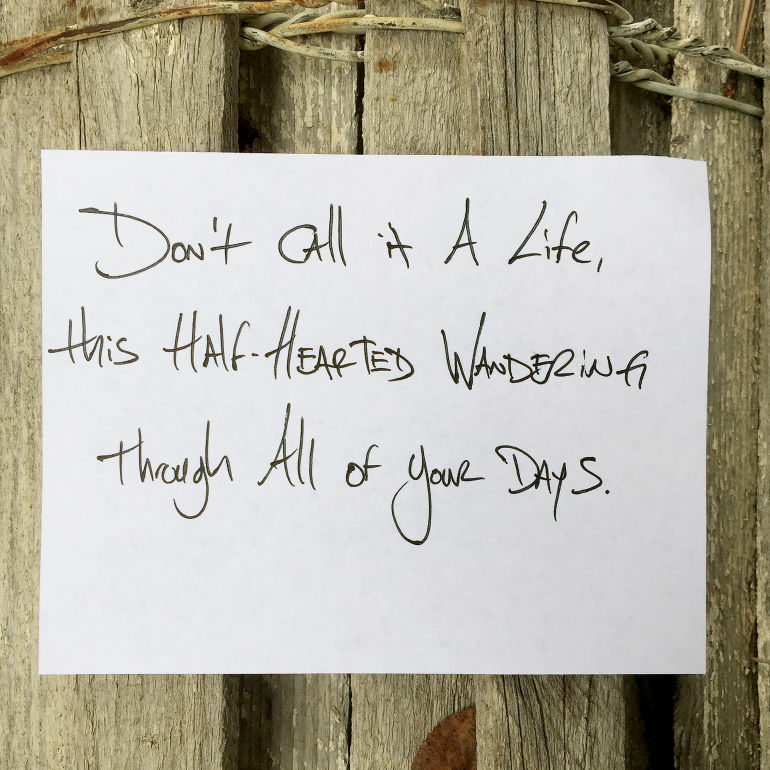 Don't Call it A Life,
this Half-Hearted Wandering
through All of your Days.